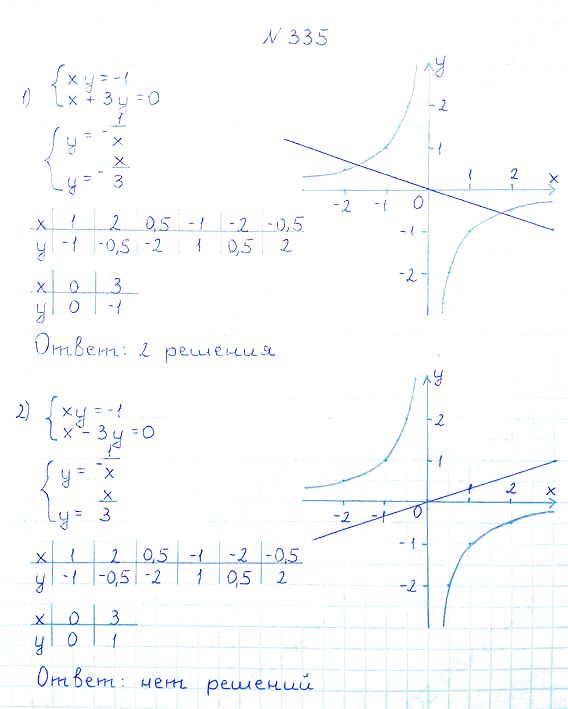 № 335
1) { xy = -1
x + 3y = 0
{ y = -1/x
y = -x/3
x | 1 | 2 | 0,5 | -1 | -2 | -0,5
y | -1 | -0,5 | -2 | 1 | 0,5 | 2
x | 0 | 3
y | 0 | -1
Ответ: 2 решения
y
2
1
-2 -1 0 1 2 x
-1
-2
2) { xy = -1
x - 3y = 0
{ y = -1/x
y = x/3
x | 1 | 2 | 0,5 | -1 | -2 | -0,5
y | -1 | -0,5 | -2 | 1 | 0,5 | 2
x | 0 | 3
y | 0 | 1
Ответ: нет решений
y
2
1
-2 -1 0 1 2 x
-1
-2